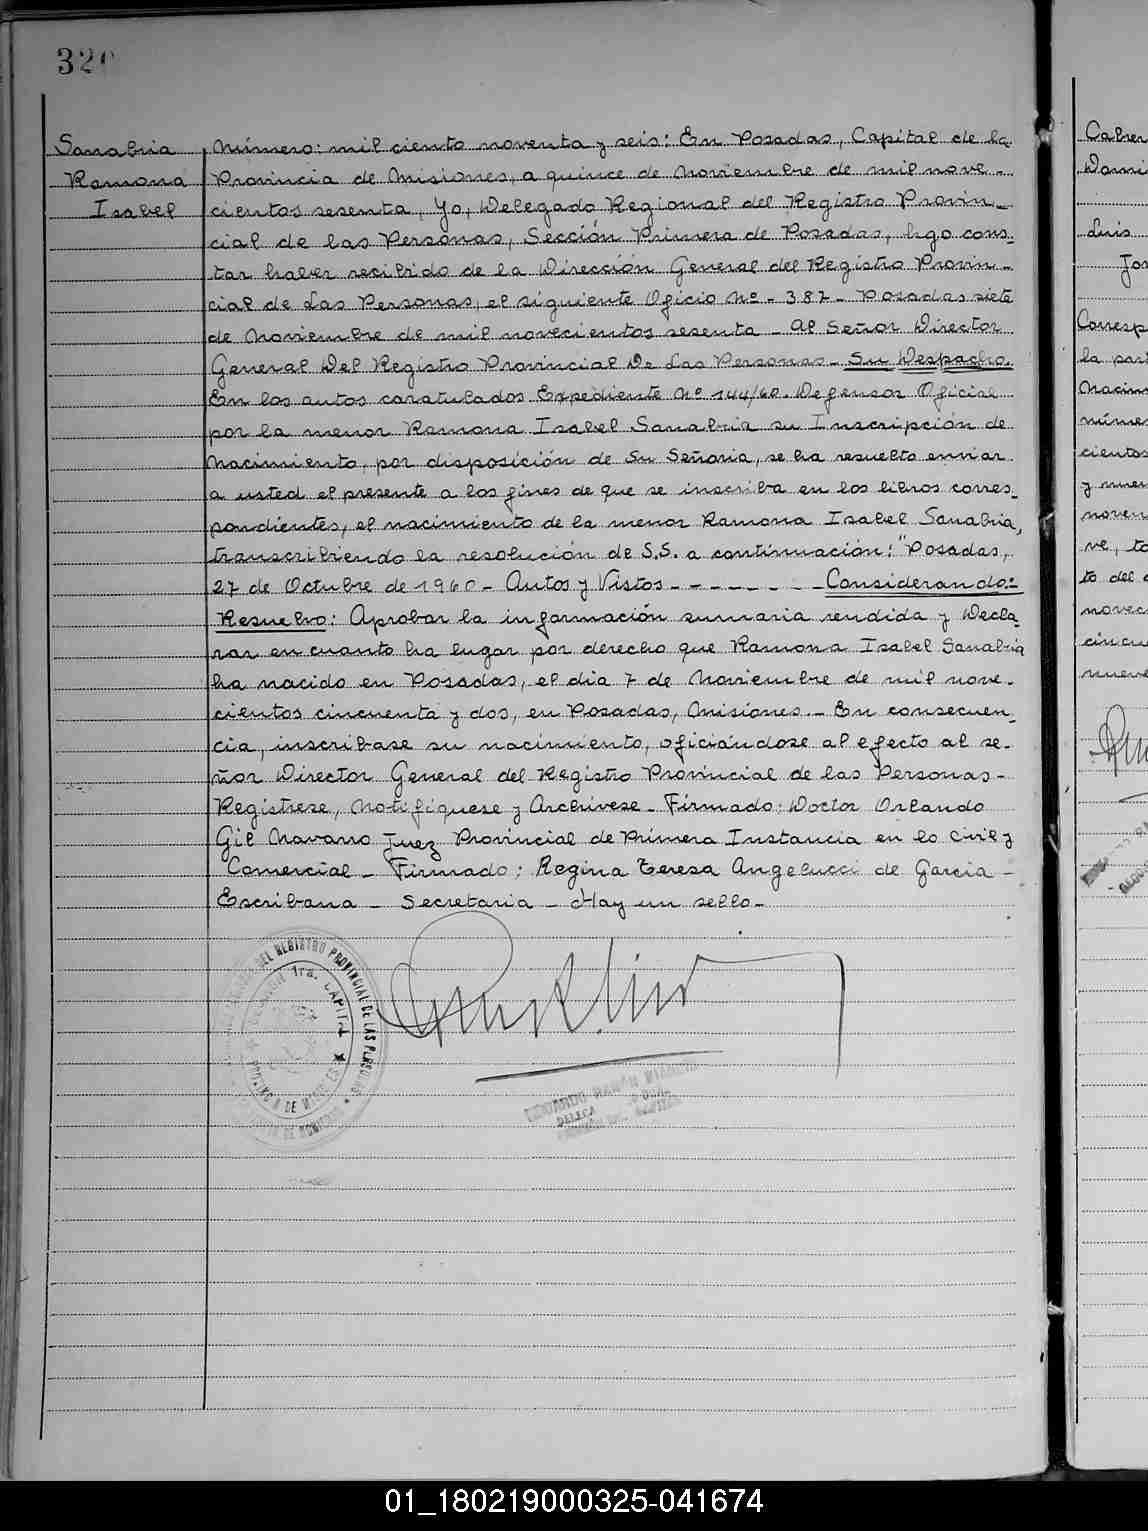 320
Sanabria
Ramona
Isabel
Número: mil ciento noventa y seis: En Posadas, Capital de la
Provincia de Misiones, a quince de Noviembre de mil nove-
cientos sesenta, Yo, Delegado Regional del Registro Provin-
cial de las Personas, Sección Primera de Posadas, hgo cons-
tar haber recibido de la Dirección General del Registro Provin-
cial de Las Personas, el siguiente Oficio Nº - 387 - Posadas siete
de Noviembre de mil novecientos sesenta - Al Señor Director
General Del Registro Provincial De Las Personas - Su Despacho.
En los autos caratulados Expediente Nº 144/60. Defensor Oficial
por la menor Ramona Isabel Sanabria su Inscripción de
Nacimiento, por disposición de Su Señoria, se ha resuelto enviar
a usted el presente a los fines de que se inscriba en los libros corres-
pondientes, el nacimiento de la menor Ramona Isabel Sanabria,
transcribiendo la resolución de S.S. a continuación: "Posadas,
27 de Octubre de 1960 - Autos y Vistos - - - - - - - Considerando:
Resuelvo: Aprobar la información sumaria rendida y Decla-
rar en cuanto ha lugar por derecho que Ramona Isabel Sanabria
ha nacido en Posadas, el dia 7 de Noviembre de mil nove-
cientos cincuenta y dos, en Posadas, Misiones. - En consecuen-
cia, inscribase su nacimiento, oficiándose al efecto al se-
ñor Director General del Registro Provincial de las Personas -
Registrese, Notifiquese y Archivese - Firmado: Doctor Orlando
Gil Navarro Juez Provincial de Primera Instancia en lo Civil y
Comercial - Firmado: Regina Teresa Angelucci de Garcia -
Escribana - Secretaria - Hay un sello -
DEL REGISTRO PROVINCIAL DE LAS PERSONAS
SECCION 1ra. CAPITAL
PROVINCIA DE MISIONES
EDUARDO RAMÓN
DELEGA
Luis
la
Nacim
cientos
y nuev
noven
ve, to
to del
novec
cincu
nueve
01_180219000325-041674